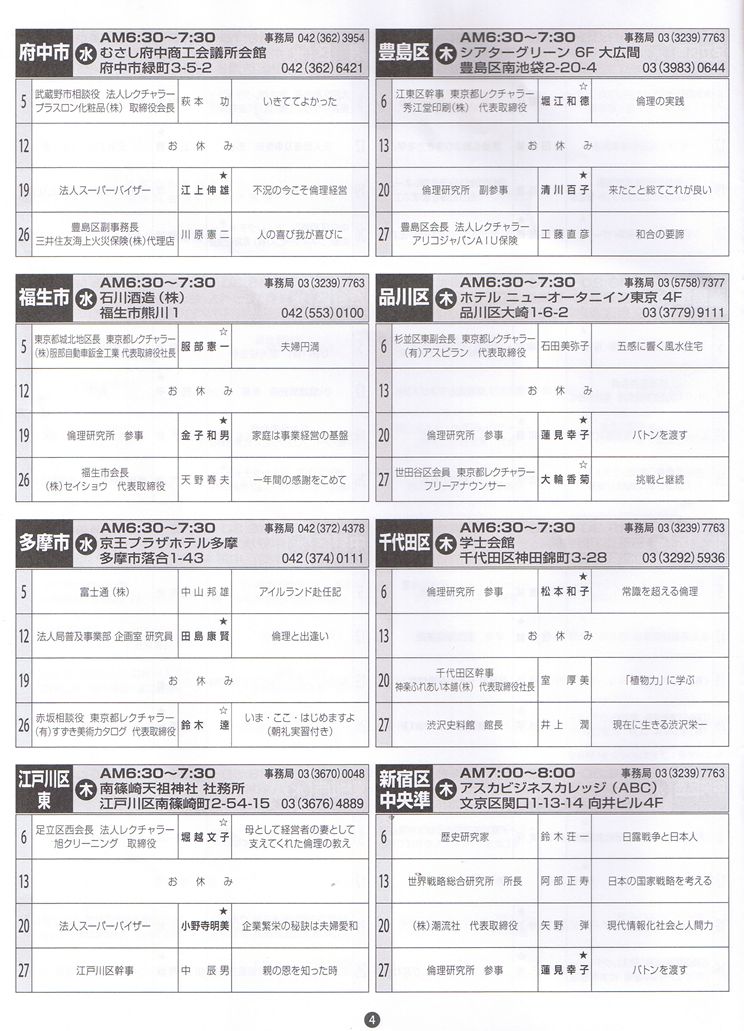 府中市
水
AM6:30〜7:30 事務局 042(362)3954
むさし府中商工会議所会館
府中市緑町3-5-2 042(362)6421
5 武蔵野市相談役 法人レクチャラー
プラスロン化粧品(株) 取締役会長 萩本 功 いきててよかった
12 お休み
19 法人スーパーバイザー ★江上伸雄 不況の今こそ倫理経営
26 豊島区副事務長
三井住友海上火災保険(株)代理店 川原憲二 人の喜び我が喜びに
福生市
水
AM6:30〜7:30 事務局 03(3239)7763
石川酒造(株)
福生市熊川1 042(553)0100
5 東京都城北地区長 東京都レクチャラー
(株)服部自動車鈑金工業 代表取締役社長 ☆服部憲一 夫婦円満
12 お休み
19 倫理研究所 参事 ★金子和男 家庭は事業経営の基盤
26 福生市会長
(株)セイショウ 代表取締役 天野春夫 一年間の感謝をこめて
多摩市
水
AM6:30〜7:30 事務局 042(372)4378
京王プラザホテル多摩
多摩市落合1-43 042(374)0111
5 富士通(株) 中山邦雄 アイルランド赴任記
12 法人局普及事業部 企画室 研究員 ★田島康賢 倫理と出逢い
19 お休み
26 赤坂相談役 東京都レクチャラー
(有)すずき美術カタログ 代表取締役 ☆鈴木 達 いま・ここ・はじめますよ
(朝礼実習付き)
江戸川区
東
木
AM6:30〜7:30 事務局 03(3670)0048
南篠崎天祖神社 社務所
江戸川区南篠崎町2-54-15 03(3676)4889
6 足立区西会長 法人レクチャラー
旭クリーニング 取締役 ☆堀越文子 母として経営者の妻として
支えてくれた倫理の教え
13 お休み
20 法人スーパーバイザー ★小野寺明美 企業繁栄の秘訣は夫婦愛和
27 江戸川区幹事 中 辰男 親の恩を知った時
豊島区
木
AM6:30〜7:30 事務局 03(3239)7763
シアターグリーン 6F 大広間
豊島区南池袋2-20-4 03(3983)0644
6 江東区幹事 東京都レクチャラー
秀江堂印刷(株) 代表取締役 ☆堀江和徳 倫理の実践
13 お休み
20 倫理研究所 副参事 ★清川百子 来たこと総てこれが良い
27 豊島区会長 法人レクチャラー
アリコジャパンAIU保険 工藤直彦 和合の要諦
品川区
木
AM6:30〜7:30 事務局 03(5758)7377
ホテル ニューオータニイン東京 4F
品川区大崎1-6-2 03(3779)9111
6 杉並区東副会長 東京都レクチャラー
(有)アスピラン 代表取締役 石田美弥子 五感に響く風水住宅
13 お休み
20 倫理研究所 参事 ★蓮見幸子 バトンを渡す
27 世田谷区会員 東京都レクチャラー
フリーアナウンサー ☆大輪香菊 挑戦と継続
千代田区
木
AM6:30〜7:30 事務局 03(3239)7763
学士会館
千代田区神田錦町3-28 03(3292)5936
6 倫理研究所 参事 ★松本和子 常識を超える倫理
13 お休み
20 千代田区幹事
神楽ふれあい本舗(株) 代表取締役社長 室 厚美 「植物力」に学ぶ
27 渋沢史料館 館長 井上 潤 現在に生きる渋沢栄一
新宿区
中央準
木
AM7:00〜8:00 事務局 03(3239)7763
アスカビジネスカレッジ(ABC)
文京区関口1-13-14 向井ビル4F
6 歴史研究家 鈴木荘一 日露戦争と日本人
13 世界戦略総合研究所 所長 阿部正寿 日本の国家戦略を考える
20 (株)潮流社 代表取締役 矢野 弾 現代情報化社会と人間力
27 倫理研究所 参事 ★蓮見幸子 バトンを渡す
4